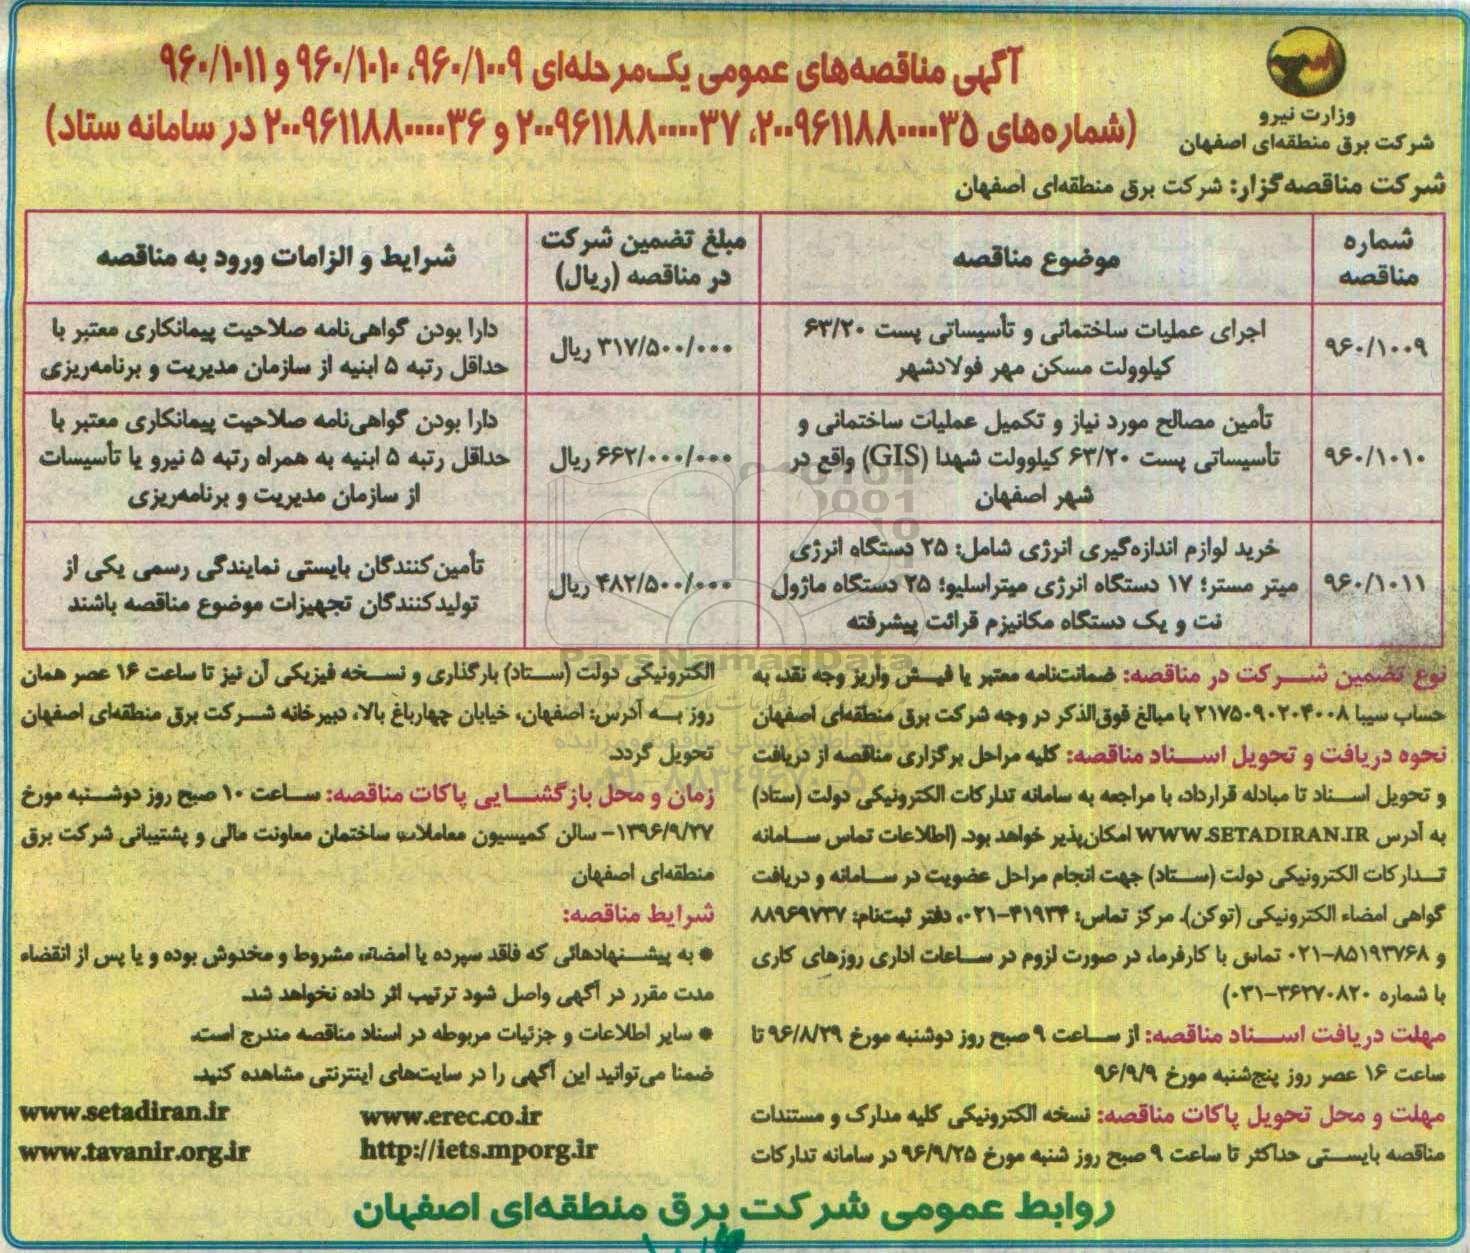 وزارت نیرو
شرکت برق منطقه‌ای اصفهان
آگهی مناقصه‌های عمومی یک‌مرحله‌ای ۹۶۰/۱۰۰۹، ۹۶۰/۱۰۱۰ و ۹۶۰/۱۰۱۱
(شماره‌های ۲۰۰۹۶۱۱۸۸۰۰۰۰۳۵، ۲۰۰۹۶۱۱۸۸۰۰۰۰۳۷ و ۲۰۰۹۶۱۱۸۸۰۰۰۰۳۶ در سامانه ستاد)
شرکت مناقصه‌گزار: شرکت برق منطقه‌ای اصفهان
شماره مناقصه
موضوع مناقصه
مبلغ تضمین شرکت در مناقصه (ریال)
شرایط و الزامات ورود به مناقصه
۹۶۰/۱۰۰۹
اجرای عملیات ساختمانی و تأسیساتی پست ۶۳/۲۰
کیلوولت مسکن مهر فولادشهر
۳۱۷/۵۰۰/۰۰۰ ریال
دارا بودن گواهی‌نامه صلاحیت پیمانکاری معتبر با
حداقل رتبه ۵ ابنیه از سازمان مدیریت و برنامه‌ریزی
۹۶۰/۱۰۱۰
تأمین مصالح مورد نیاز و تکمیل عملیات ساختمانی و
تأسیساتی پست ۶۳/۲۰ کیلوولت شهدا (GIS) واقع در
شهر اصفهان
۶۶۲/۰۰۰/۰۰۰ ریال
دارا بودن گواهی‌نامه صلاحیت پیمانکاری معتبر با
حداقل رتبه ۵ ابنیه به همراه رتبه ۵ نیرو یا تأسیسات
از سازمان مدیریت و برنامه‌ریزی
۹۶۰/۱۰۱۱
خرید لوازم اندازه‌گیری انرژی شامل: ۲۵ دستگاه انرژی
میتر مستر؛ ۱۷ دستگاه انرژی میتراسلیو؛ ۲۵ دستگاه ماژول
نت و یک دستگاه مکانیزم قرائت پیشرفته
۴۸۲/۵۰۰/۰۰۰ ریال
تأمین‌کنندگان بایستی نمایندگی رسمی یکی از
تولیدکنندگان تجهیزات موضوع مناقصه باشند
نوع تضمین شرکت در مناقصه: ضمانت‌نامه معتبر یا فیش واریز وجه نقد، به
حساب سیبا ۲۱۷۵۰۹۰۲۰۴۰۰۸ با مبالغ فوق‌الذکر در وجه شرکت برق منطقه‌ای اصفهان
نحوه دریافت و تحویل اسناد مناقصه: کلیه مراحل برگزاری مناقصه از دریافت
و تحویل اسناد تا مبادله قرارداد، با مراجعه به سامانه تدارکات الکترونیکی دولت (ستاد)
به آدرس WWW.SETADIRAN.IR امکان‌پذیر خواهد بود. (اطلاعات تماس سامانه
تدارکات الکترونیکی دولت (ستاد) جهت انجام مراحل عضویت در سامانه و دریافت
گواهی امضاء الکترونیکی (توکن). مرکز تماس: ۴۱۹۳۴-۰۲۱، دفتر ثبت‌نام: ۸۸۹۶۹۷۳۷
و ۸۵۱۹۳۷۶۸-۰۲۱ تماس با کارفرما، در صورت لزوم در ساعات اداری روزهای کاری
با شماره ۳۶۲۷۰۸۲۰-۰۳۱)
مهلت دریافت اسناد مناقصه: از ساعت ۹ صبح روز دوشنبه مورخ ۹۶/۸/۲۹ تا
ساعت ۱۶ عصر روز پنج‌شنبه مورخ ۹۶/۹/۹
مهلت و محل تحویل پاکات مناقصه: نسخه الکترونیکی کلیه مدارک و مستندات
مناقصه بایستی حداکثر تا ساعت ۹ صبح روز شنبه مورخ ۹۶/۹/۲۵ در سامانه تدارکات
الکترونیکی دولت (ستاد) بارگذاری و نسخه فیزیکی آن نیز تا ساعت ۱۶ عصر همان
روز به آدرس: اصفهان، خیابان چهارباغ بالا، دبیرخانه شرکت برق منطقه‌ای اصفهان
تحویل گردد.
زمان و محل بازگشایی پاکات مناقصه: ساعت ۱۰ صبح روز دوشنبه مورخ
۱۳۹۶/۹/۲۷- سالن کمیسیون معاملات ساختمان معاونت مالی و پشتیبانی شرکت برق
منطقه‌ای اصفهان
شرایط مناقصه:
● به پیشنهادهائی که فاقد سپرده یا امضاء، مشروط و مخدوش بوده و یا پس از انقضاء
مدت مقرر در آگهی واصل شود ترتیب اثر داده نخواهد شد.
● سایر اطلاعات و جزئیات مربوطه در اسناد مناقصه مندرج است.
ضمنا می‌توانید این آگهی را در سایت‌های اینترنتی مشاهده کنید.
www.erec.co.ir www.setadiran.ir
http://iets.mporg.ir www.tavanir.org.ir
روابط عمومی شرکت برق منطقه‌ای اصفهان
ParsNamadData
۰۲۱-۸۸۳۴۹۶۷۰-۵